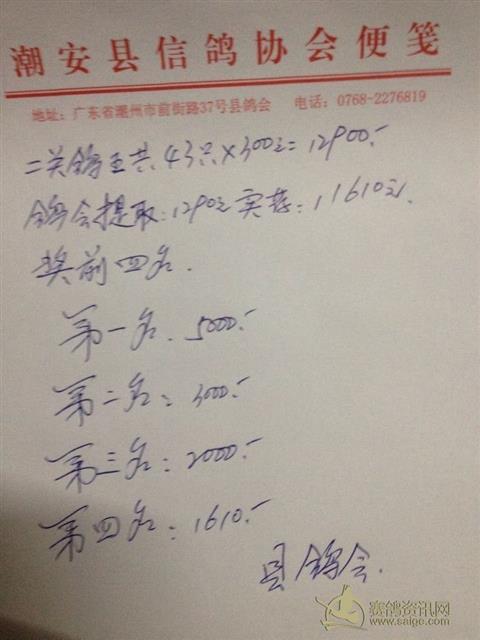 潮安县信鸽协会便笺
地址：广东省潮州市前街路37号县鸽会 电话：0768-2276819
二关鸽王共43只×300元=12900.-
鸽会提取：1290元实存：11610元.
奖前四名.
第一名.5000.-
第二名：3000.-
第三名：2000.-
第四名：1610.-
县鸽会.
赛鸽资讯网
www.saige.com